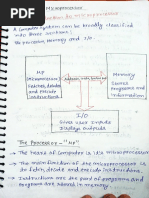 Microprocessor
Introduction to microprocessor
A Computer system can be broadly classified
into three sections:
The processor, Memory and I/O.
MP
(Microprocessor)
Fetches, decodes
and executes
Instructions
Memory
Stores
Programs and
Information
I/O
User uses Inputs
Displays outputs
The Processor - "MP"
→ The heart of Computer is its microprocessor
→ The main function of the microprocessor is
to fetch, decode and execute instructions.
→ Instructions are the part of programs and
programs are stored in memory.